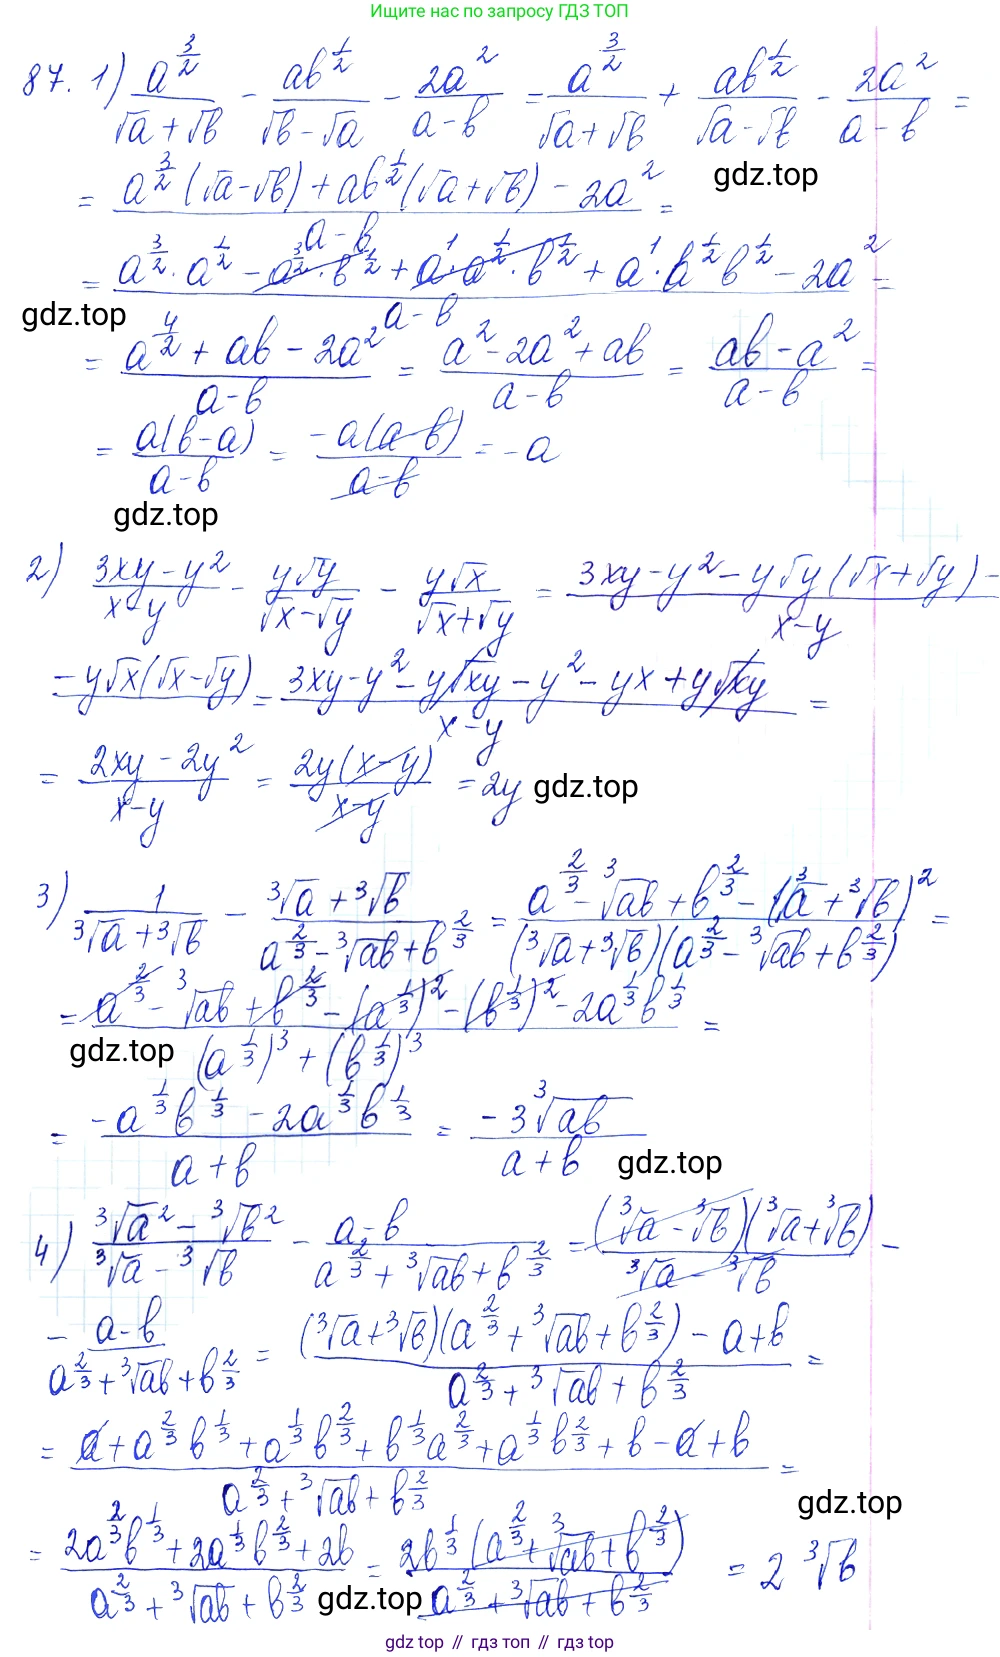 Ищите нас по запросу ГДЗ ТОП
87. 1) a^(3/2)/(√a + √b) - ab^(1/2)/(√b - √a) - 2a²/(a - b) = a^(3/2)/(√a + √b) + ab^(1/2)/(√a - √b) - 2a²/(a - b) =
= (a^(3/2)(√a - √b) + ab^(1/2)(√a + √b) - 2a²)/(a - b) =
gdz.top
= (a^(3/2) · a^(1/2) - a^(3/2) · b^(1/2) + a¹ · a^(1/2) · b^(1/2) + a¹ · b^(1/2) b^(1/2) - 2a²)/(a - b) =
gdz.top
= (a^(4/2) + ab - 2a²)/(a - b) = (a² - 2a² + ab)/(a - b) = (ab - a²)/(a - b) =
= a(b - a)/(a - b) = -a(a - b)/(a - b) = -a
gdz.top
2) (3xy - y²)/(x - y) - y√y/(√x - √y) - y√x/(√x + √y) = (3xy - y² - y√y(√x + √y) -
- y√x(√x - √y))/(x - y) = (3xy - y² - y√xy - y² - yx + y√xy)/(x - y) =
= (2xy - 2y²)/(x - y) = 2y(x - y)/(x - y) = 2y gdz.top
3) 1/(³√a + ³√b) - (³√a + ³√b)/(a^(2/3) - ³√ab + b^(2/3)) = (a^(2/3) - ³√ab + b^(2/3) - (³√a + ³√b)²)/((³√a + ³√b)(a^(2/3) - ³√ab + b^(2/3))) =
= (a^(2/3) - ³√ab + b^(2/3) - (a^(1/3))² - (b^(1/3))² - 2a^(1/3)b^(1/3))/((a^(1/3))³ + (b^(1/3))³) =
gdz.top
= (-a^(1/3)b^(1/3) - 2a^(1/3)b^(1/3))/(a + b) = -3³√ab/(a + b)
gdz.top
4) (³√a² - ³√b²)/(³√a - ³√b) - (a - b)/(a^(2/3) + ³√ab + b^(2/3)) = (³√a - ³√b)(³√a + ³√b)/(³√a - ³√b) -
- (a - b)/(a^(2/3) + ³√ab + b^(2/3)) = ((³√a + ³√b)(a^(2/3) + ³√ab + b^(2/3)) - a + b)/(a^(2/3) + ³√ab + b^(2/3)) =
= (a + a^(2/3)b^(1/3) + a^(1/3)b^(2/3) + b^(1/3)a^(2/3) + a^(1/3)b^(2/3) + b - a + b)/(a^(2/3) + ³√ab + b^(2/3)) =
gdz.top
= (2a^(2/3)b^(1/3) + 2a^(1/3)b^(2/3) + 2b)/(a^(2/3) + ³√ab + b^(2/3)) = 2b^(1/3)(a^(2/3) + ³√ab + b^(2/3))/(a^(2/3) + ³√ab + b^(2/3)) = 2³√b
gdz.top
gdz top // гдз топ // гдз top